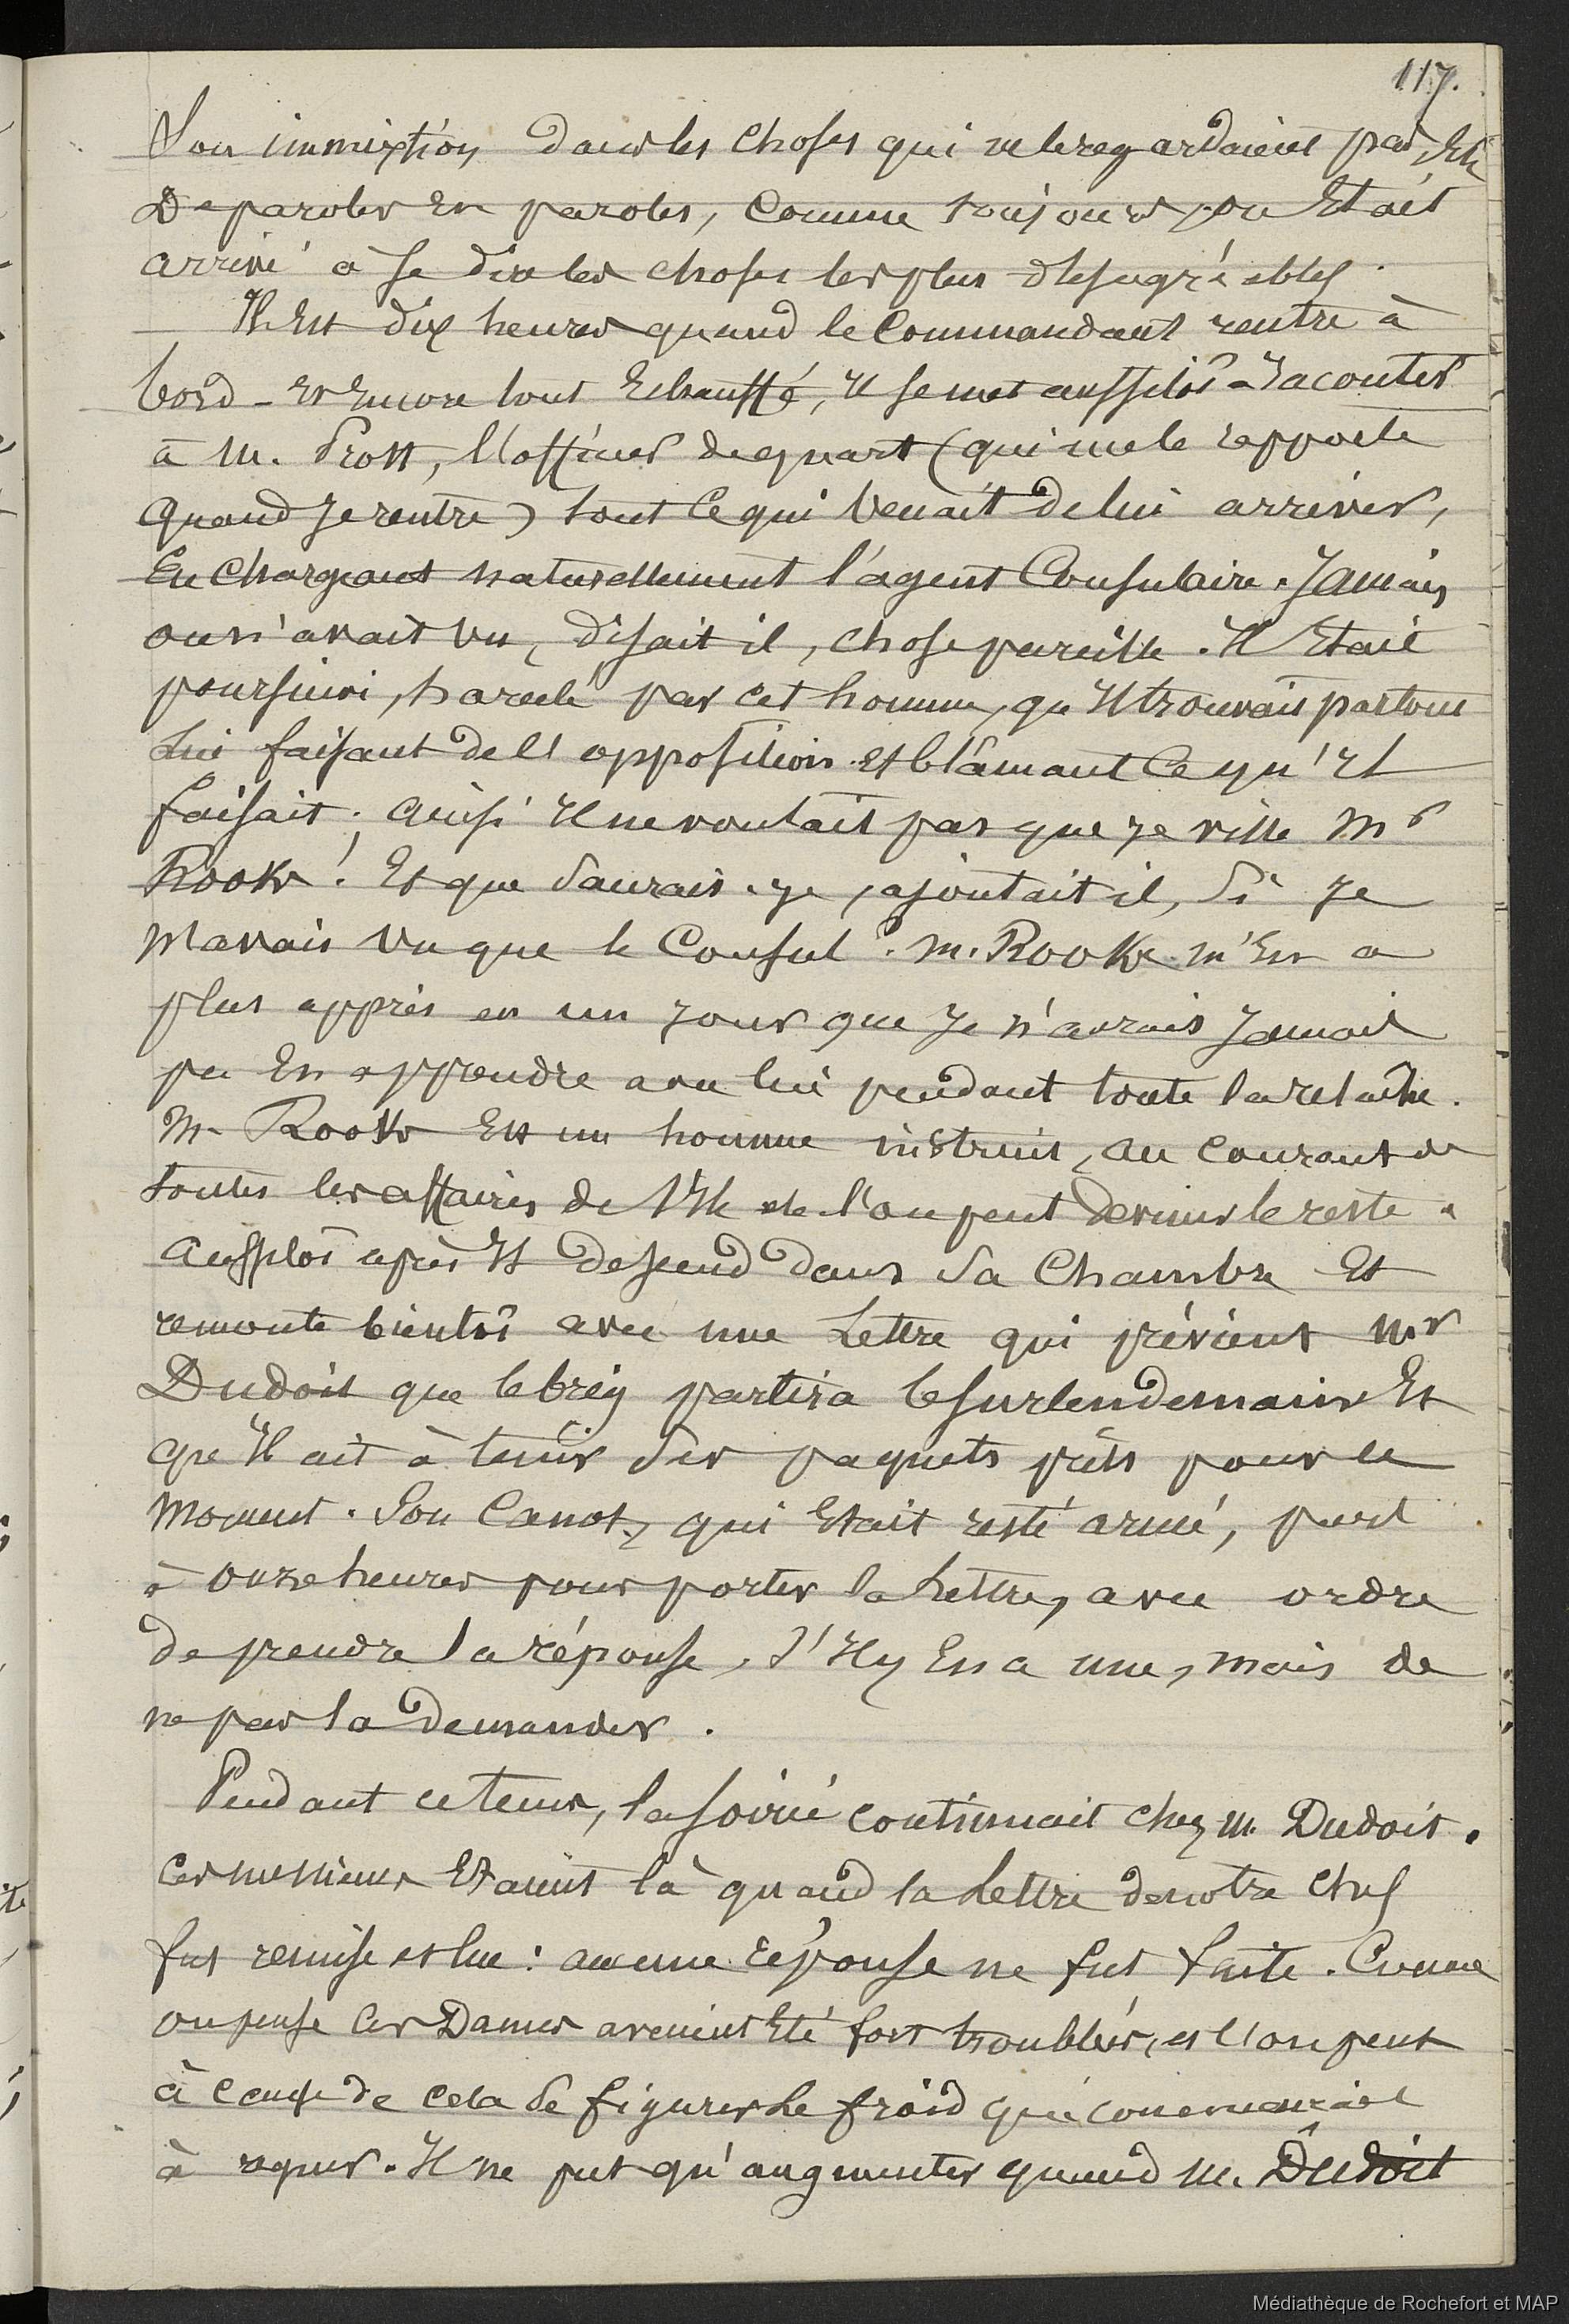 117.
Son immixtion dans les choses qui ne le regardaient pas, Et
De paroles En paroles, Comme toujours, on Etait
arrivé à se dire les choses les plus désagréables.
Il Est dix heures quand le Commandant rentre à
bord - et Encore tout Echauffé, Il se met aussitôt à raconter
à M. Prost, l'officier de quart (qui me le rapporte
quand Je rentre) tout Ce qui Venait De lui arriver,
En Chargeant naturellement l'agent Consulaire. Jamais
on n'avait vu, disait il, chose pareille. Il Etait
poursuivi, harcelé par cet homme, qu'Il trouvait partout
Lui faisant de l'opposition et blâmant Ce qu'Il
faisait; ainsi Il ne voulait pas que Je visse Mr
Rooke! Et que Saurais-je, ajoutait il, Si Je
n'avais vu que le Consul? M. Rooke m'En a
plus appris en un Jour que Je n'aurais Jamais
pu En apprendre avec lui pendant toute la relâche.
M. Rooke Est un homme instruit, au Courant de
toutes les affaires de l'Ile et l'on peut deviner le reste.
Aussitôt après Il descend dans Sa Chambre Et
remonte bientôt avec une Lettre qui prévient Mr
Dudoit que le brig partira le surlendemain Et
qu'Il ait à tenir ses paquets prêts pour ce
moment. Son Canot, qui Etait resté armé, part
à onze heures pour porter la Lettre, avec ordre
de prendre la réponse, s'Il y En a une, mais de
ne pas la Demander.
Pendant ce tems, la soirée continuait chez M. Dudoit.
Ces messieurs Etaient là quand la Lettre de notre Chef
fut remise et lue: aucune réponse ne fut faite. Comme
on pense Ces Dames avaient Eté fort troublées, et l'on peut
à Cause de Cela Se figurer Le froid qui commençait
à régner. Il ne put qu'augmenter quand M. Dudoit
Médiathèque de Rochefort et MAP